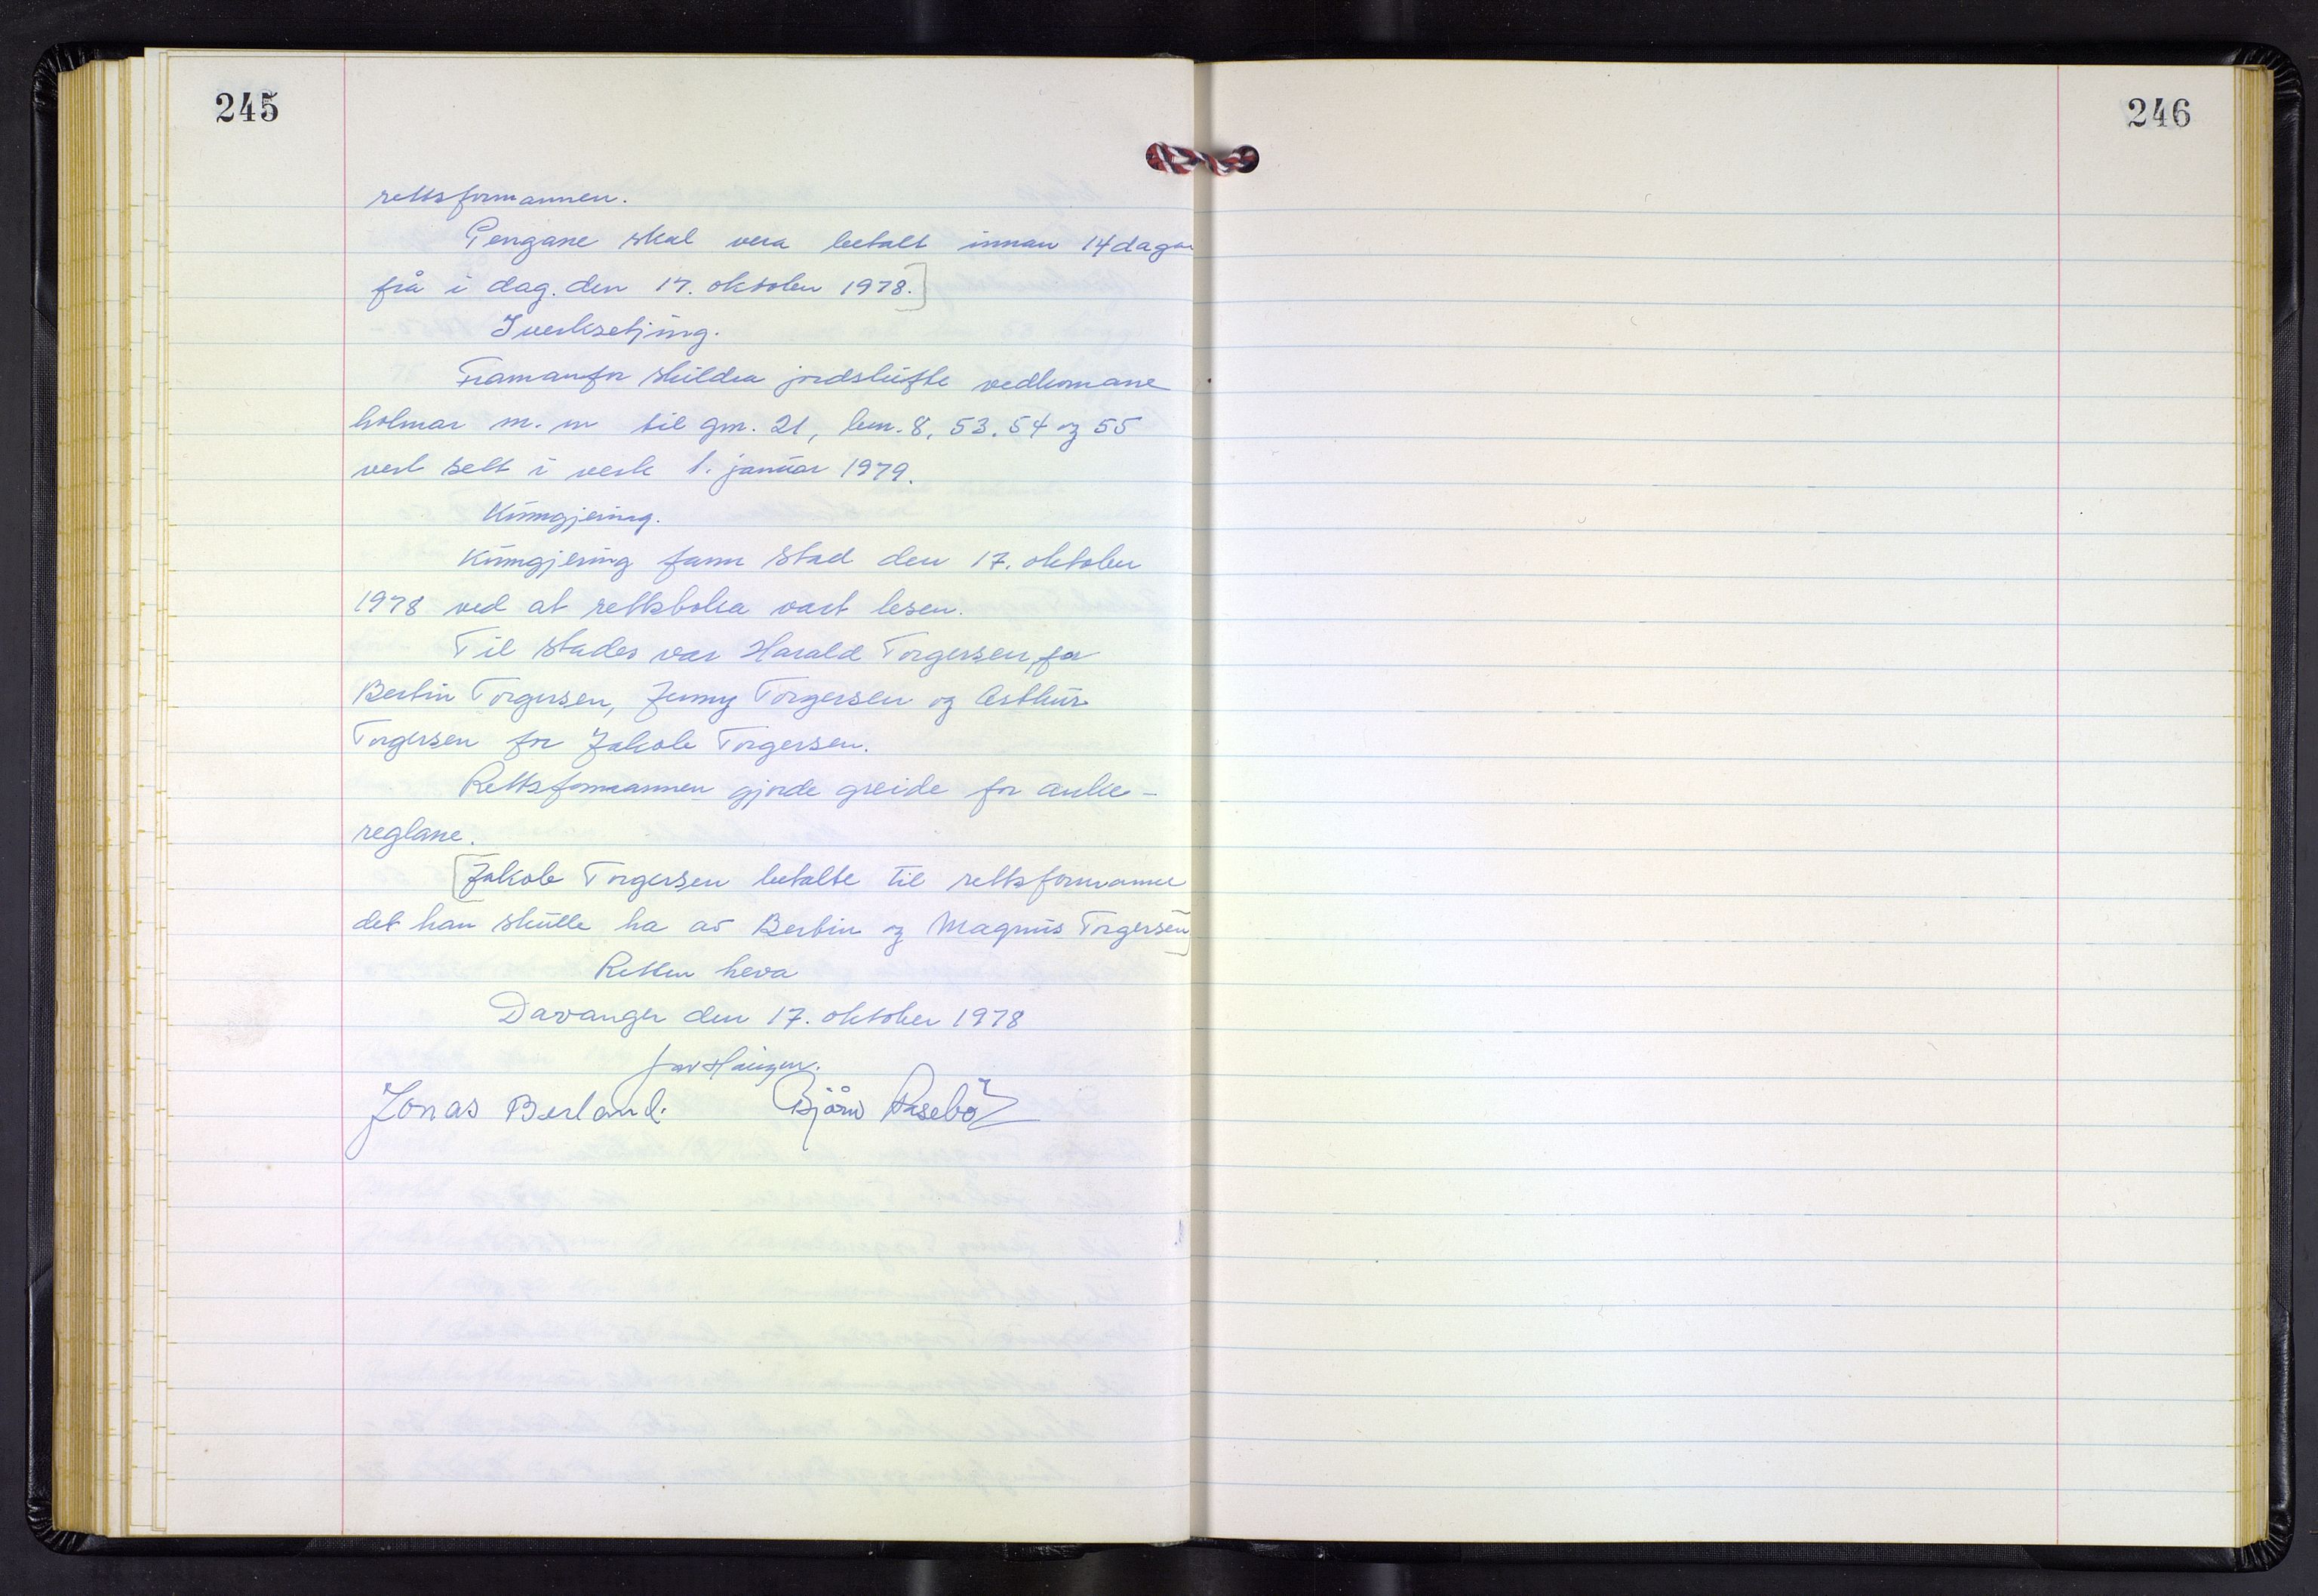 245
rettsformannen.
Pengane skal vera betalt innan 14 dagar
frå i dag. den 17. oktober 1978.]
Iverksetjing.
Framanfor skildra jordskifte vedkomane
holmar m. m til gnr. 21, bnr. 8, 53. 54 og 55
vert sett i verk 1. januar 1979.
Kunngjering.
Kunngjering fann stad den 17. oktober
1978 ved at rettsboka vart lesen.
Til stades var Harald Torgersen, for
Bertin Torgersen, Jenny Torgersen og Arthur
Torgersen for Jakob Torgersen.
Rettsformannen gjorde greide for anke-
reglane.
[Jakob Torgersen betalte til rettsformannen
det han skulle ha av Bertin og Magnus Torgersen]
Retten heva
Davanger den 17. oktober 1978
Jonas Berland. Bjørn Aasebø
246